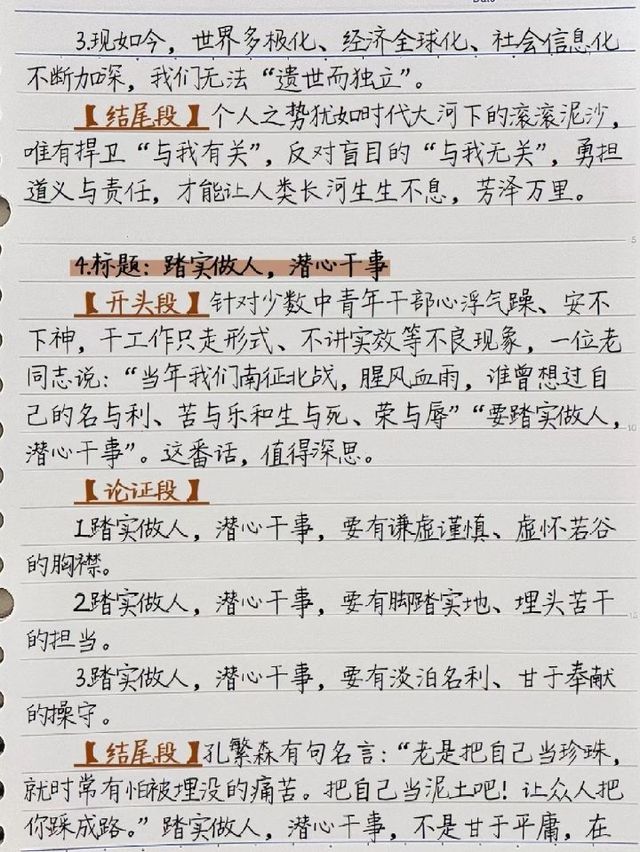 3.现如今，世界多极化、经济全球化、社会信息化
不断加深，我们无法“遗世而独立”。
【结尾段】个人之势犹如时代大河下的滚滚泥沙，
唯有捍卫“与我有关”，反对盲目的“与我无关”，勇担
道义与责任，才能让人类长河生生不息，芳泽万里。
4.标题：踏实做人，潜心干事
【开头段】针对少数中青年干部心浮气躁、安不
下神，干工作只走形式、不讲实效等不良现象，一位老
同志说：“当年我们南征北战，腥风血雨，谁曾想过自
己的名与利、苦与乐和生与死、荣与辱”“要踏实做人，
潜心干事”。这番话，值得深思。
【论证段】
1.踏实做人，潜心干事，要有谦虚谨慎、虚怀若谷
的胸襟。
2.踏实做人，潜心干事，要有脚踏实地、埋头苦干
的担当。
3.踏实做人，潜心干事，要有淡泊名利、甘于奉献
的操守。
【结尾段】孔繁森有句名言：“老是把自己当珍珠，
就时常有怕被埋没的痛苦。把自己当泥土吧！让众人把
你踩成路。”踏实做人，潜心干事，不是甘于平庸，在
5
10
15